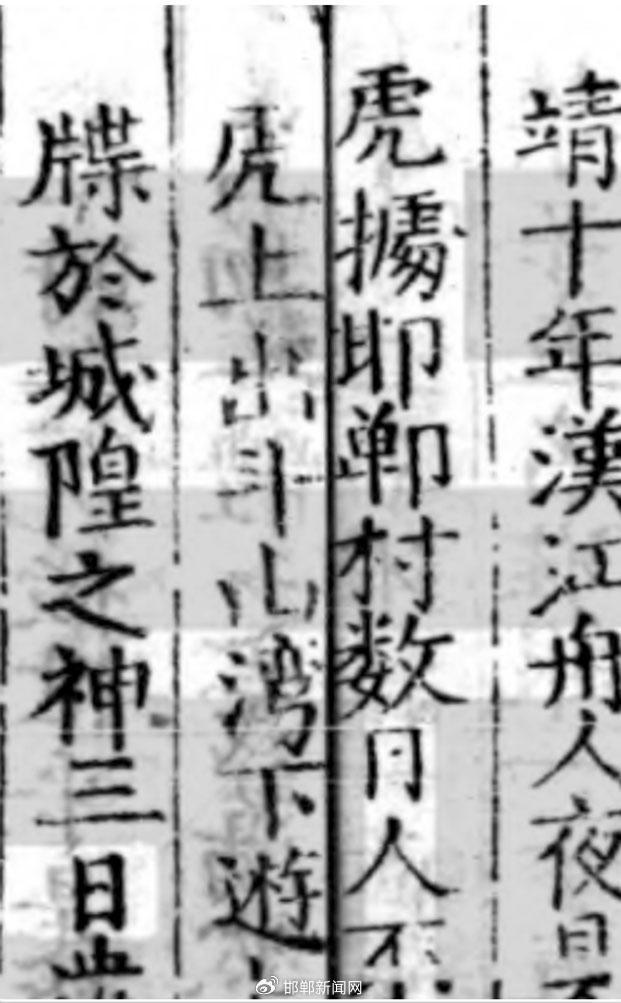 靖十年漢江舟人夜
虎據邯鄲村数日人不
虎上出斗山湾下遊
牒於城隍之神三日
邯郸新闻网